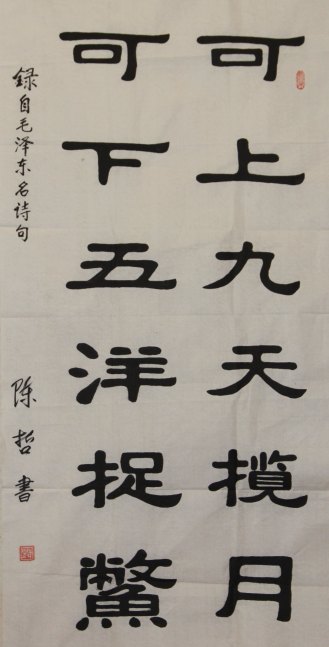 可上九天揽月
可下五洋捉鱉
録自毛泽东名诗句
陈哲書